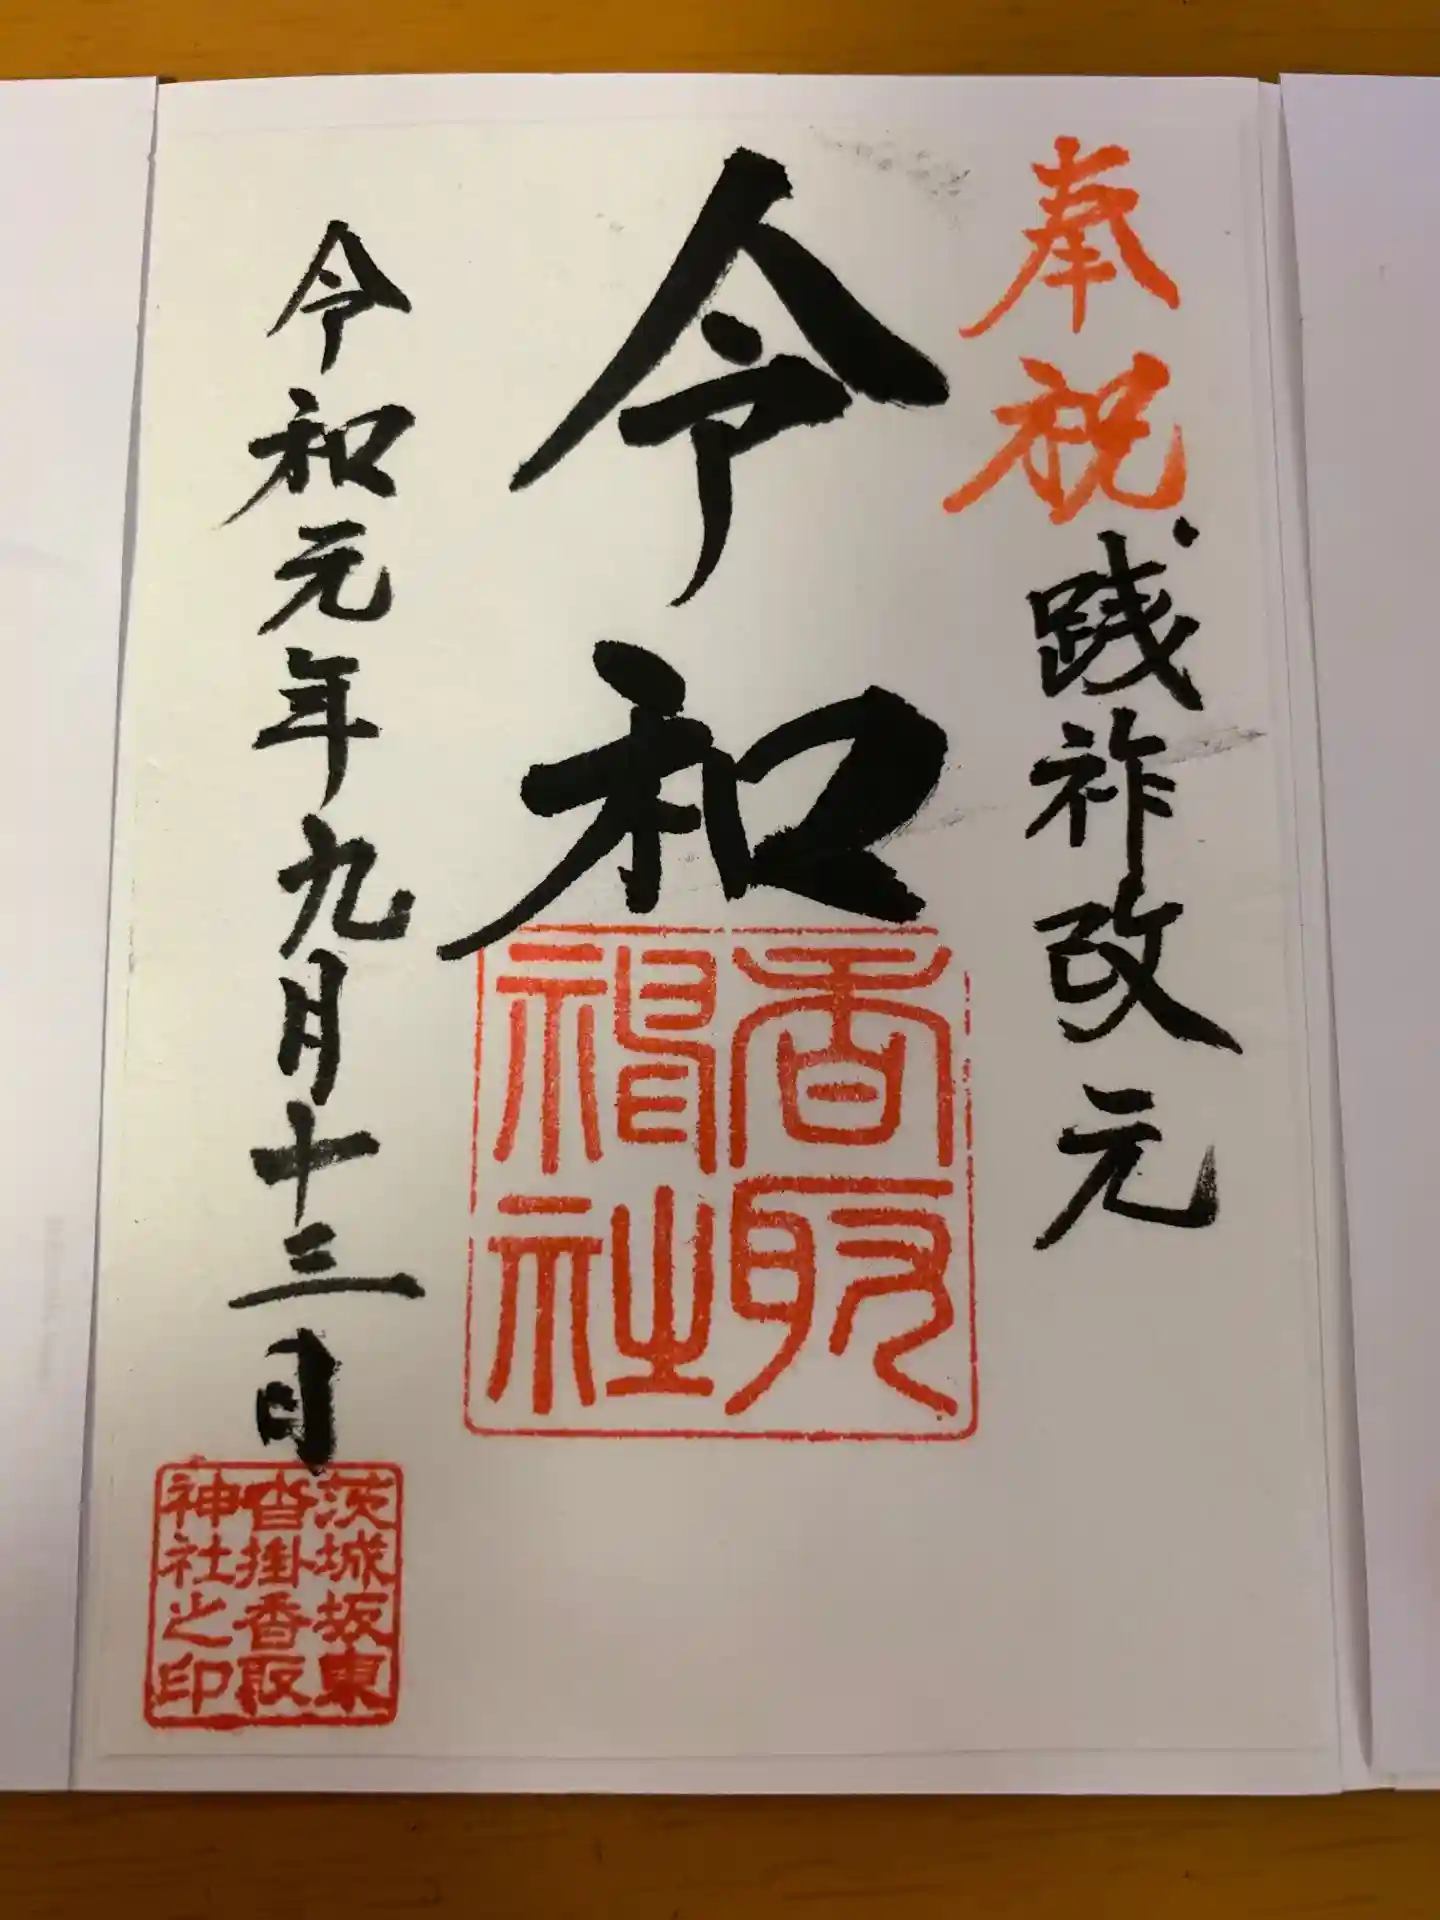 奉祝
践祚改元
令和
香取
神社
令和元年九月十三日
茨城坂東
沓掛香取
神社之印